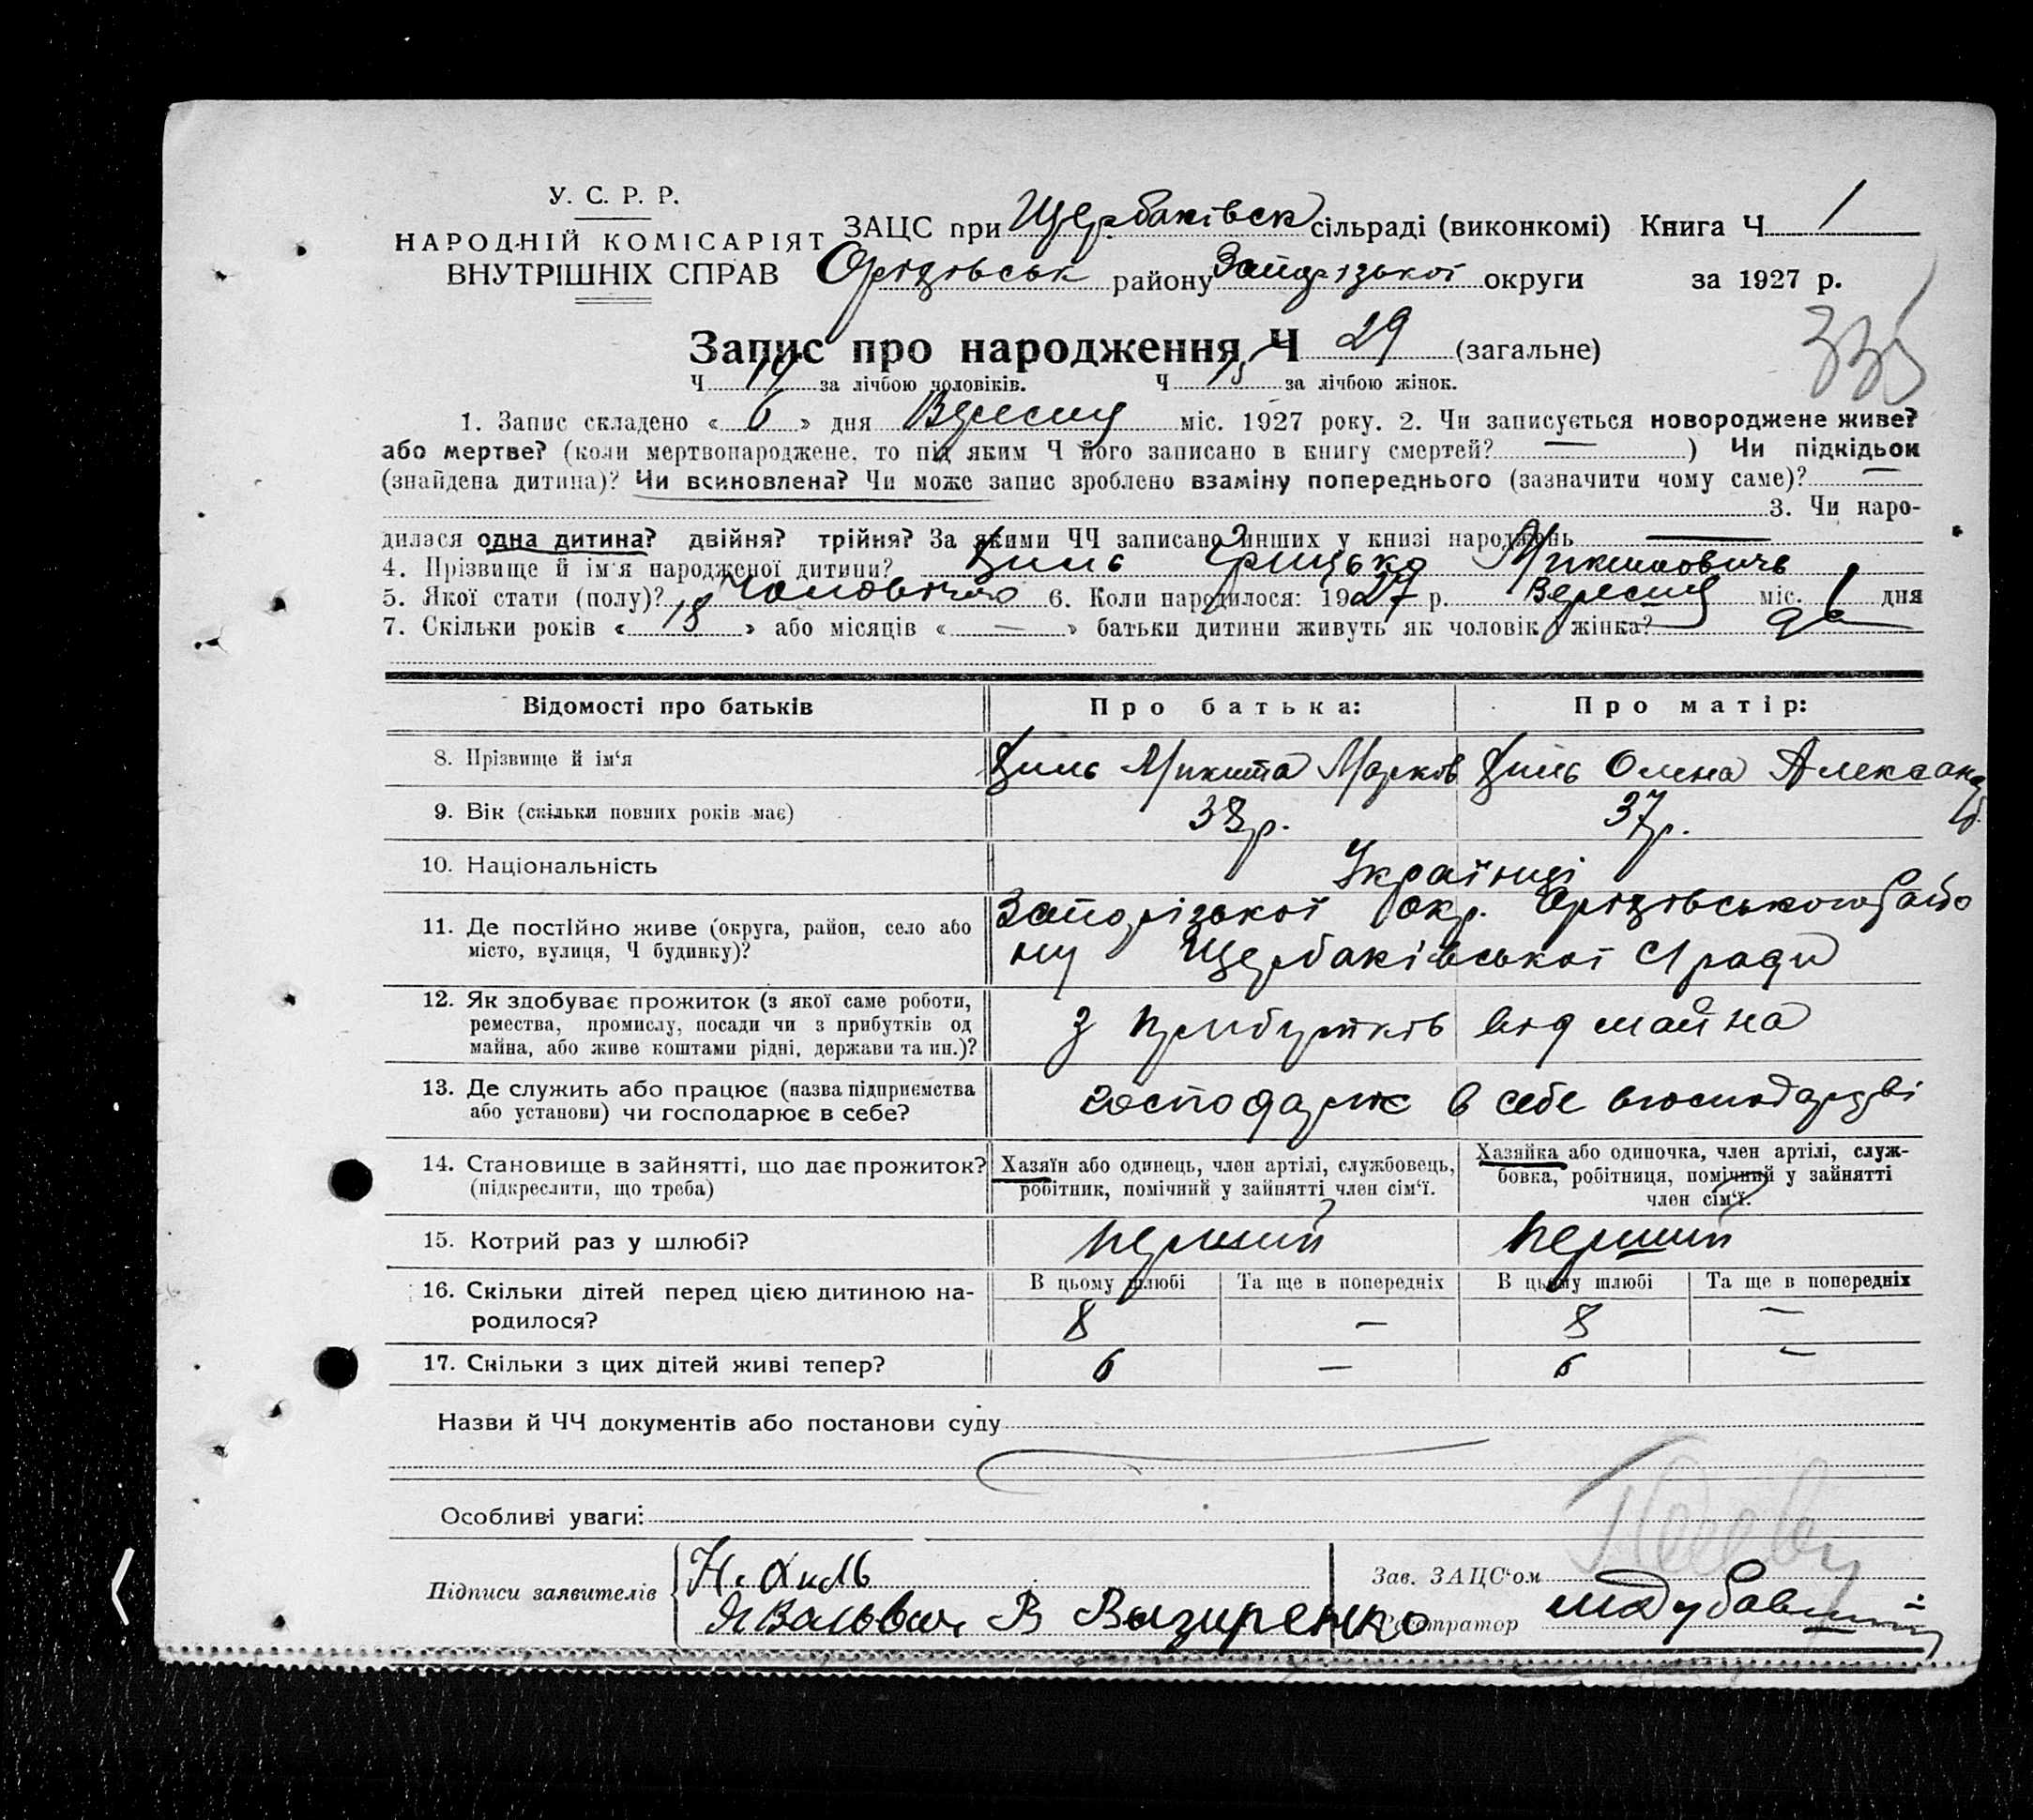 У. С. Р. Р.
НАРОДНІЙ КОМІСАРІЯТ
ВНУТРІШНІХ СПРАВ
ЗАЦС при Щербаківск сільраді (виконкомі) Книга Ч 1
Оріхівськ району Запорізької округи за 1927 р.
335
Запис про народження Ч 29 (загальне)
Ч 14 за лічбою чоловіків. Ч 15 за лічбою жінок.
1. Запис складено « 6 » дня Вересня міс. 1927 року. 2. Чи записується новороджене живе?
або мертве? (коли мертвонароджене, то під яким Ч його записано в книгу смертей? — ) Чи підкідьок
(знайдена дитина)? Чи всиновлена? Чи може запис зроблено взаміну попереднього (зазначити чому саме)? —
3. Чи наро-
дилася одна дитина? двійня? трійня? За якими ЧЧ записано инших у книзі народжень —
4. Прізвище й ім'я народженої дитини? Циль Грицько Микитовичь
5. Якої стати (полу)? Чоловічого 6. Коли народилося: 1927 р. Вересня міс. 1 дня
7. Скільки років « 18 » або місяців « — » батьки дитини живуть як чоловік і жінка?
Відомості про батьків Про батька: Про матір:
8. Прізвище й ім'я Циль Микита Марков Циль Олена Александ
9. Вік (скільки повних років має) 38 р. 37 р.
10. Національність Українці
11. Де постійно живе (округа, район, село або місто, вулиця, Ч будинку)? Запорізької окр. Оріхівського Райо
ну Щербаківської С/ради
12. Як здобуває прожиток (з якої саме роботи,
ремества, промислу, посади чи з прибутків од
майна, або живе коштами рідні, держави та ин.)? з прибутків від майна
13. Де служить або працює (назва підприємства
або установи) чи господарює в себе? господарює в себе
14. Становище в зайнятті, що дає прожиток?
(підкреслити, що треба)
Хазяїн або одинець, член артілі, службовець,
робітник, помічний у зайнятті член сім'ї.
Хазяйка або одиночка, член артілі, служ-
бовка, робітниця, помічний у зайнятті
член сім'ї.
15. Котрий раз у шлюбі? перший перший
16. Скільки дітей перед цією дитиною на-
родилося?
В цьому шлюбі Та ще в попередніх В цьому шлюбі Та ще в попередніх
8 — 8 —
17. Скільки з цих дітей живі тепер? 6 — 6 —
Назви й ЧЧ документів або постанови суду
Особливі уваги:
Підписи заявителів
В Вазиренко
Зав. ЗАЦС'ом